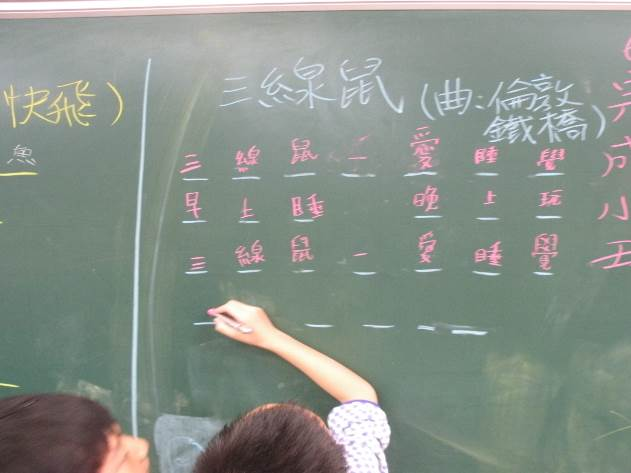 快飛)
魚
三線鼠(曲:倫敦
鐵橋)
三線鼠一愛睡覺
早上睡 晚上玩
三線鼠一愛睡覺
成
小